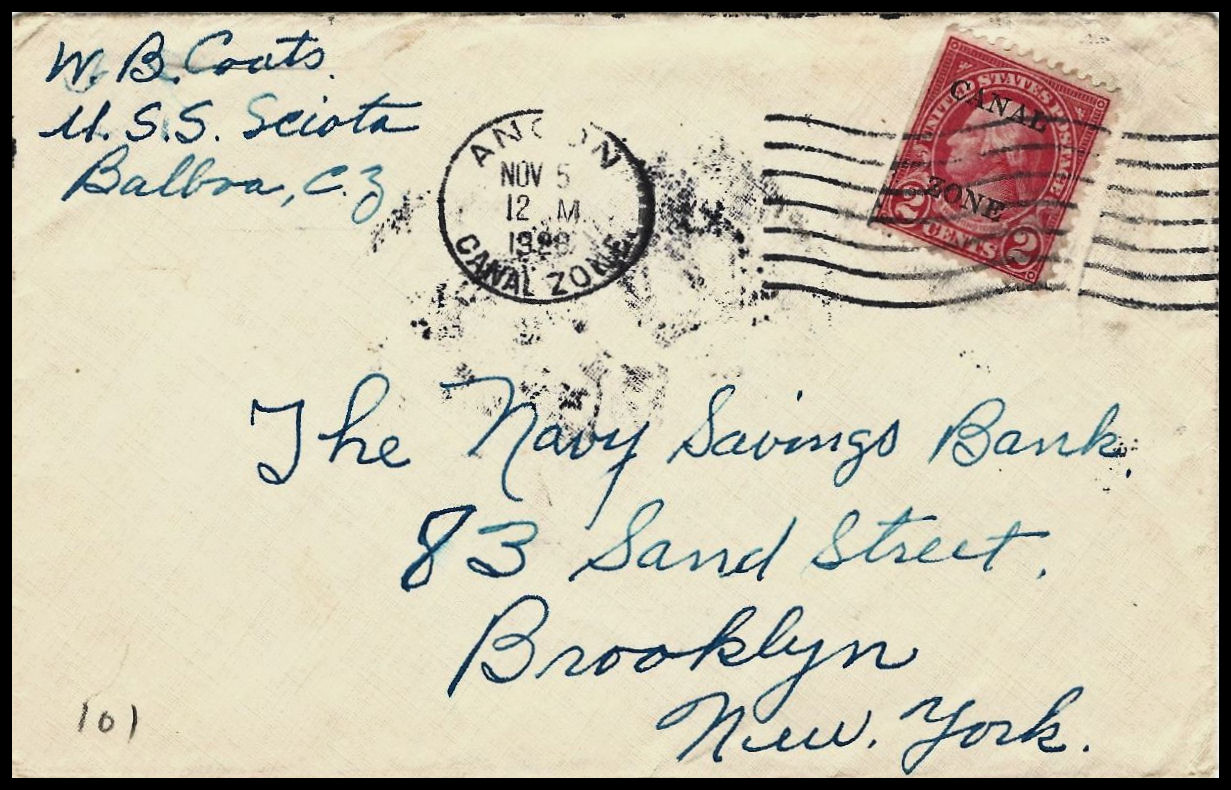 W. B. Coats.
U. S. S. Sciota
Balboa, C. Z
ANCON
NOV 5
12 M
CANAL ZONE
UNITED STATES POSTAGE
CANAL
ZONE
2 CENTS 2
The Navy Savings Bank.
83 Sand Street.
Brooklyn
New. York.
101